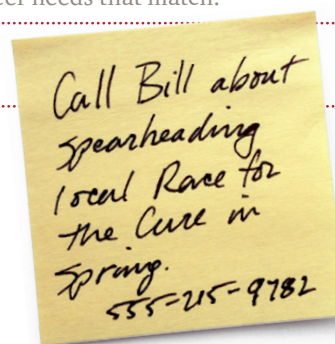 needs that match.
Call Bill about
spearheading
local Race for
the Cure in
Spring.
555-215-9782